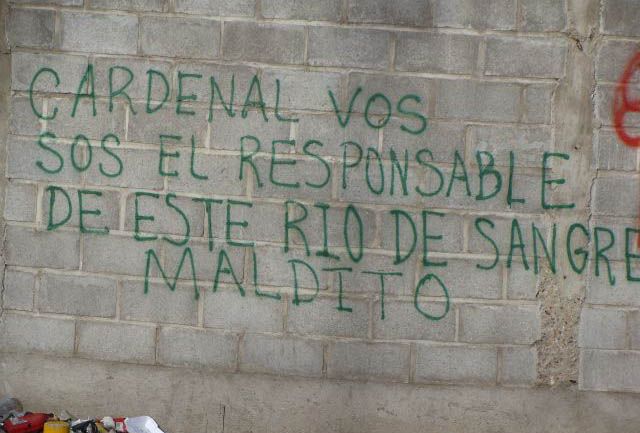 CARDENAL VOS
SOS EL RESPONSABLE
DE ESTE RIO DE SANGRE
MALDITO